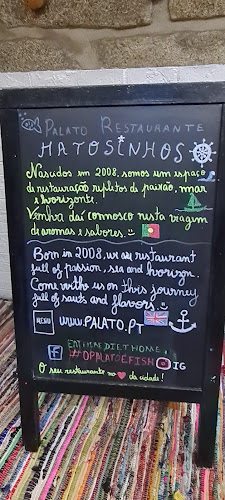 PALATO RESTAURANTE
MATOSINHOS
Nascidos em 2008, somos um espaço
de restauração repletos de paixão, mar
e horizonte.
Venha daí connosco nesta viagem
de aromas e sabores.
Born in 2008, we are restaurant
full of passion, sea and horizon.
Come with us on this journey
full of scents and flavors.
MENU www.PALATO.PT
EATTHEDIETHOME,
#OPALATOEFISH IG
O seu restaurante no da cidade!